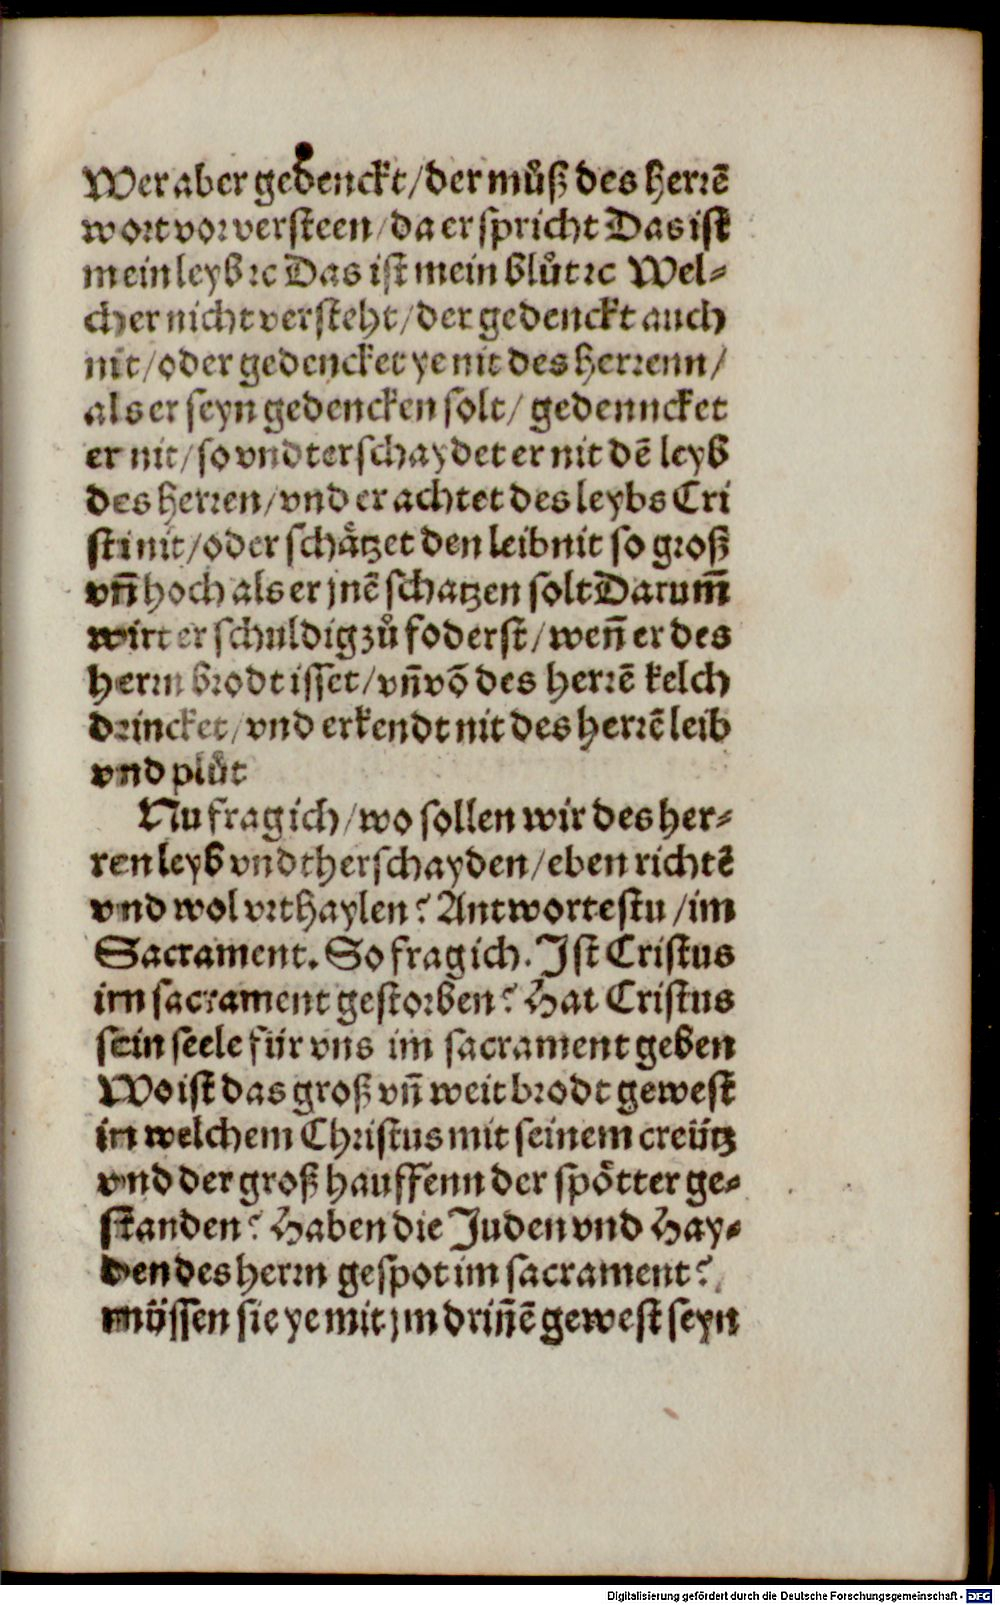 Wer aber gedenckt/der můß des herrē
wort vor versteen/da er spricht Das ist
mein leyb ꝛc Das ist mein blůt ꝛc Wel⸗
cher nicht versteht/der gedenckt auch
nit/oder gedencket ye nit des herrenn/
als er seyn gedencken solt/ gedenncket
er nit/so vndterschaydet er nit dē leyb
des herren/vnd er achtet des leybs Cri
sti nit/oder schåtzet den leib nit so groß
vn̄ hoch als er jnē schatzen solt Darum̄
wirt er schuldig zů foderst/wen̄ er des
herrn brodt isset/vn̄ vō des herrē kelch
drincket/vnd erkendt nit des herrē leib
vnd plůt
Nu frag ich/wo sollen wir des her⸗
ren leyb vndtherschayden/eben richtē
vnd wol vrthaylen? Antwortestu /im
Sacrament. So frag ich. Ist Cristus
im sacrament gestorben? Hat Cristus
sein seele für vns im sacrament geben
Wo ist das groß vn̄ weit brodt gewest
in welchem Christus mit seinem creütz
vnd der groß hauffenn der spötter ge⸗
standen? Haben die Juden vnd Hay⸗
den des herrn gespot im sacrament?
müssen sie ye mit jm drin̄ē gewest seyn
Digitalisierung gefördert durch die Deutsche Forschungsgemeinschaft - DFG